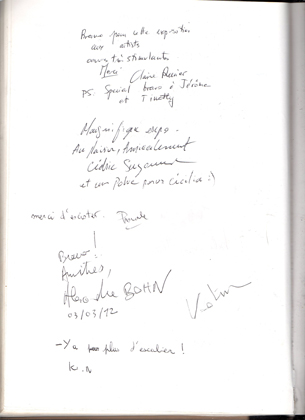 Bravo pour cette exposition
aux artists
œuvres très stimulantes
Merci Claire
PS. Special bravo à Jérôme
et Timothy
Magnifique expo.
Au plaisir, Amicalement
Cédric Suzanne
et un pour Cécilia :)
merci d'exister.
Bravo!
Amitiés,
BOHN
03/03/12
- Y a pas plus d'escalier !
K.N